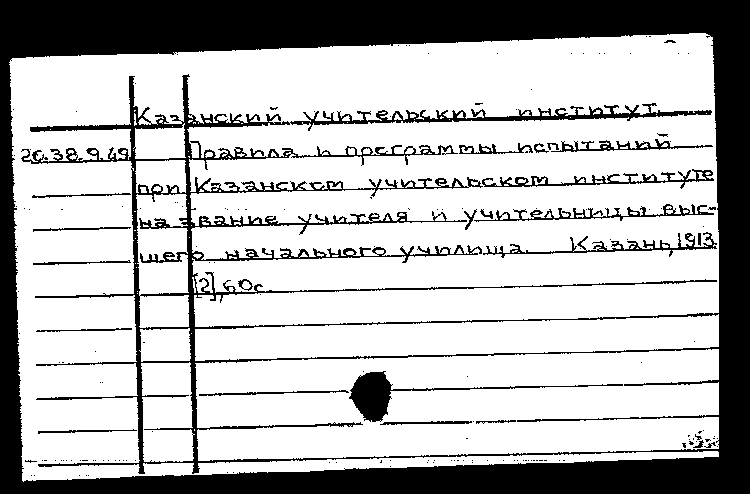 Казанский учительский институт.
20.38.9.49 Правила и программы испытаний
при Казанском учительском институте
на звание учителя и учительницы выс-
шего начального училища. Казань, 1913.
[2], 60 с.